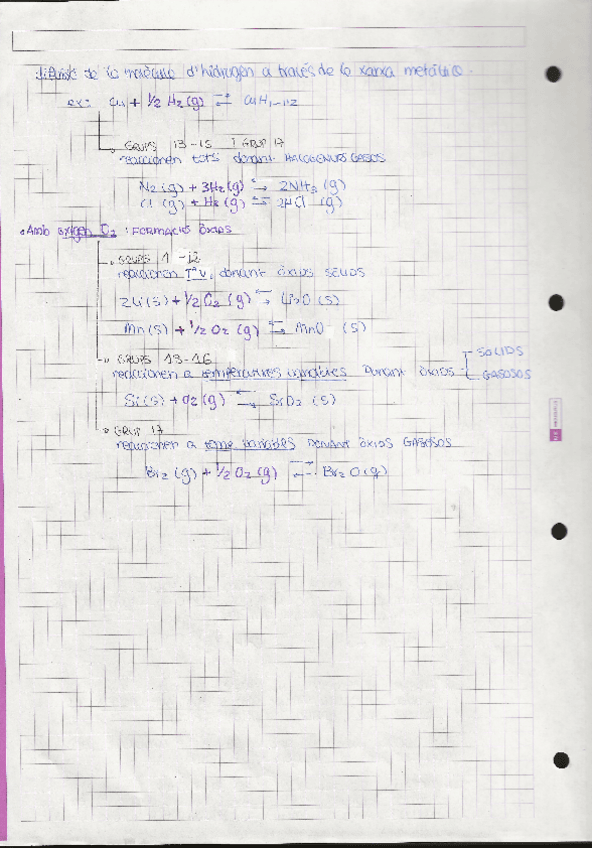 de la molècula d'hidrogen a través de la xarxa metàl·lica.
ex: Cu + 1/2 H2 (g) ⇌ CuH
GRUPS 13-15 I GRUP 17
reaccionen tots donant HALOGENURS GASOS
N2 (g) + 3H2 (g) ⇌ 2NH3 (g)
Cl (g) + H2 (g) ⇌ 2HCl (g)
• Amb oxigen O2 : FORMACIÓ ÒXIDS
GRUPS 1-12
reaccionen Tª V, donant ÒXIDS SÒLIDS
2Li (s) + 1/2 O2 (g) ⇌ Li2O (s)
Mn (s) + 1/2 O2 (g) ⇌ MnO (s)
GRUPS 13-16
reaccionen a temperatures variables Donant ÒXIDS
SÒLIDS
GASOSOS
Si (s) + O2 (g) ⇌ SiO2 (s)
GRUP 17
reaccionen a temp variables DONANT ÒXIDS GASOSOS
Br2 (g) + 1/2 O2 (g) ⇌ Br2O (g)